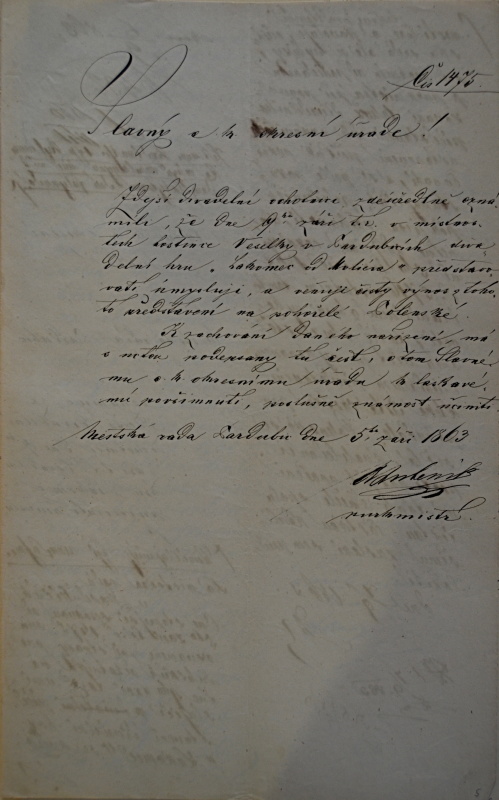 Čís 1475.
Slavný c. k. okresní úřade!
Zdejší divadelní ochotníci prostředně ozná-
mili, že dne 9ho září t. r. v místnos-
tích hostince Veselky v Pardubicích diva-
delní hru „Lakomec od Moliéra“ předstano-
vati zamýšlejí, a věnují čistý výnos z toho-
to představení na pohořelé Polenské.
K zachování daného nařízení, má
s úctou podepsaný tu čest, o tom Slavné-
mu c. k. okresnímu úřadu k laskavé-
mu povšimnutí, poslušně známost učiniti.
Městská rada Pardubic dne 5ho září 1863
purkmistr.